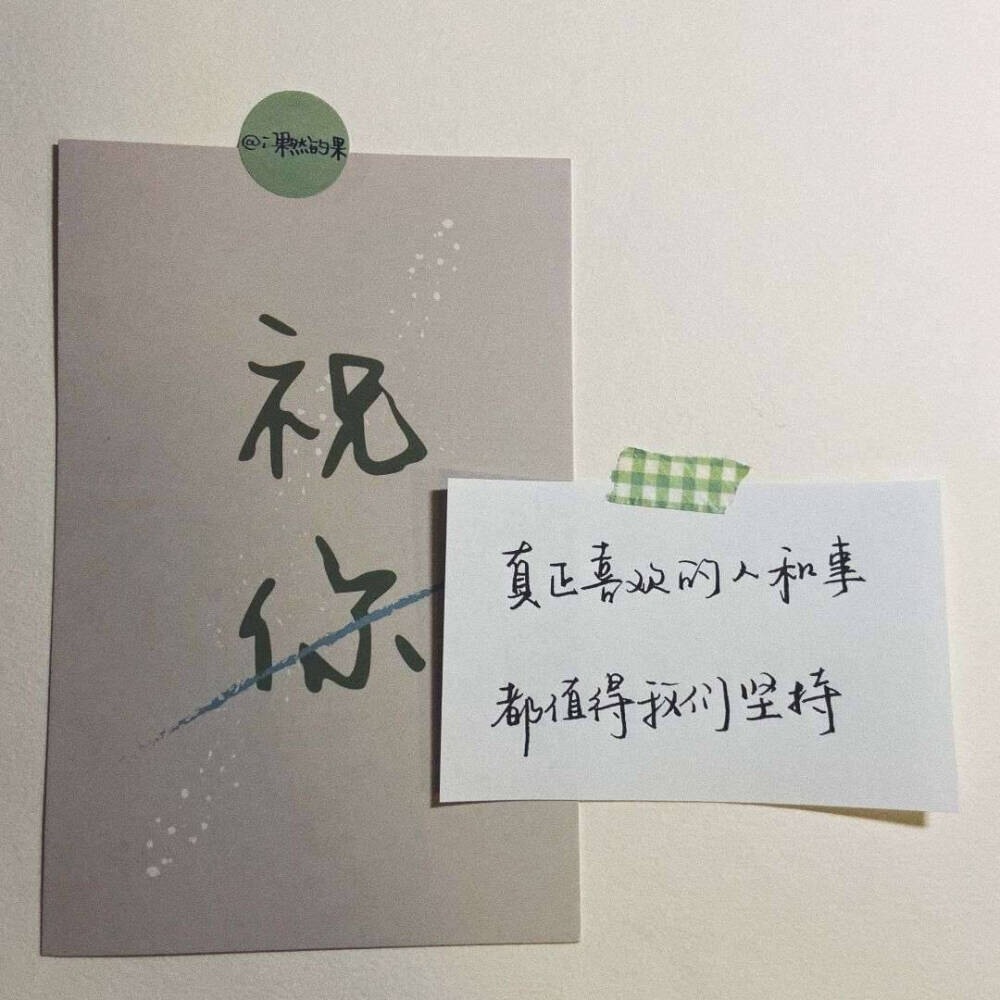 @;果然的果
祝
你
真正喜欢的人和事
都值得我们坚持